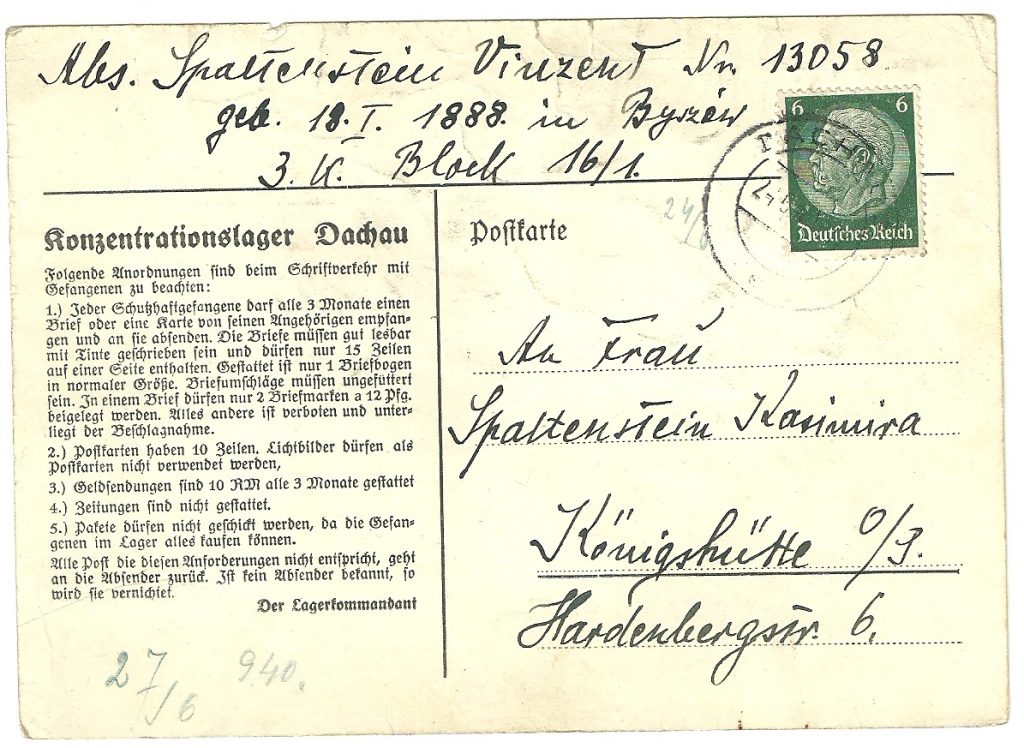 Abs. Spaltenstein Vinzent Nr. 13058
geb. 18. I. 1888. in Byszów
3. K. Block 16/1.
6 6
DACHAU
Deutsches Reich
24/6
Konzentrationslager Dachau
Folgende Anordnungen sind beim Schriftverkehr mit
Gefangenen zu beachten:
1.) Jeder Schutzhaftgefangene darf alle 3 Monate einen
Brief oder eine Karte von seinen Angehörigen empfan-
gen und an sie absenden. Die Briefe müssen gut lesbar
mit Tinte geschrieben sein und dürfen nur 15 Zeilen
auf einer Seite enthalten. Gestattet ist nur 1 Briefbogen
in normaler Größe. Briefumschläge müssen ungefüttert
sein. In einem Brief dürfen nur 2 Briefmarken a 12 Pfg.
beigelegt werden. Alles andere ist verboten und unter-
liegt der Beschlagnahme.
2.) Postkarten haben 10 Zeilen. Lichtbilder dürfen als
Postkarten nicht verwendet werden,
3.) Geldsendungen sind 10 RM alle 3 Monate gestattet
4.) Zeitungen sind nicht gestattet.
5.) Pakete dürfen nicht geschickt werden, da die Gefan-
genen im Lager alles kaufen können.
Alle Post die diesen Anforderungen nicht entspricht, geht
an die Absender zurück. Ist kein Absender bekannt, so
wird sie vernichtet.
Der Lagerkommandant
27/6 940.
Postkarte
An Frau
Spaltenstein Kasimira
Königshütte O/S.
Hardenbergstr. 6.